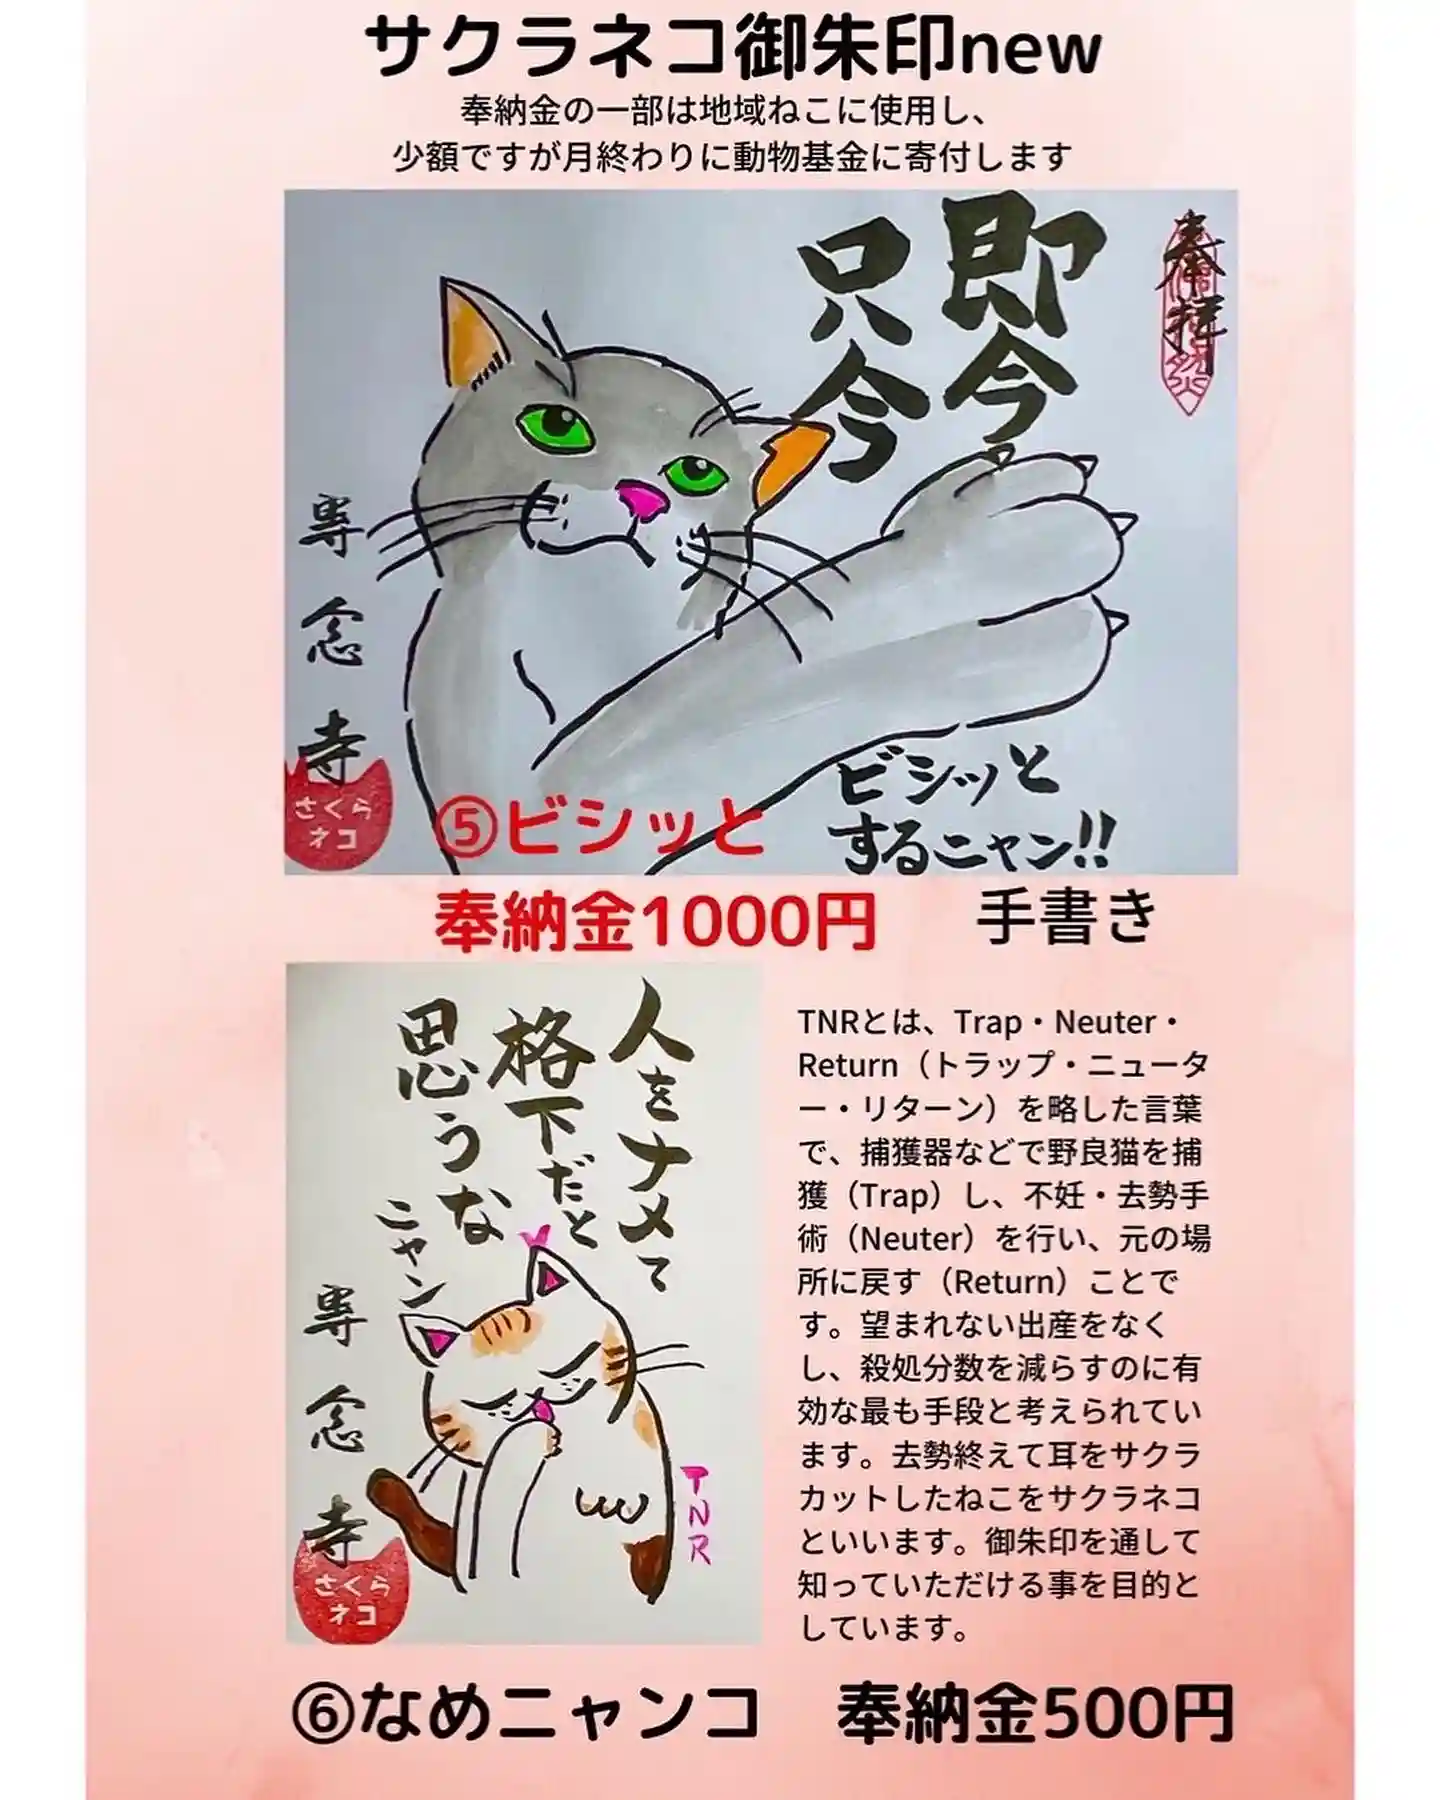 サクラネコ御朱印new
奉納金の一部は地域ねこに使用し、
少額ですが月終わりに動物基金に寄付します
奉拝
即今
只今
専念寺
さくら
ネコ
ビシッと
するニャン!!
⑤ビシッと
奉納金1000円
手書き
人をナメて
格下だと
思うな
ニャン
専念寺
さくら
ネコ
TNR
TNRとは、Trap・Neuter・
Return（トラップ・ニュータ
ー・リターン）を略した言葉
で、捕獲器などで野良猫を捕
獲（Trap）し、不妊・去勢手
術（Neuter）を行い、元の場
所に戻す（Return）ことで
す。望まれない出産をなく
し、殺処分数を減らすのに有
効な最も手段と考えられてい
ます。去勢終えて耳をサクラ
カットしたねこをサクラネコ
といいます。御朱印を通して
知っていただける事を目的と
しています。
⑥なめニャンコ 奉納金500円